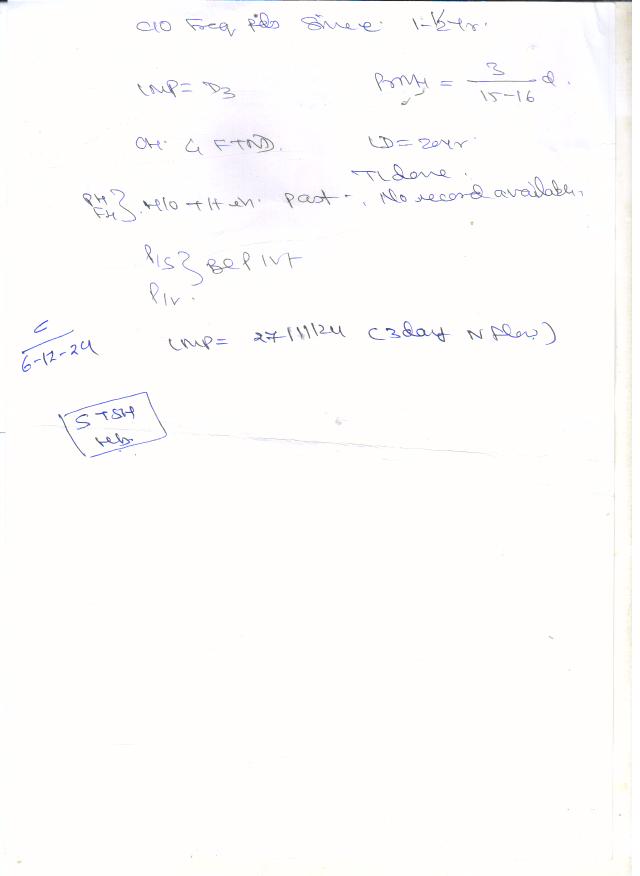 C/O Freq pds since 1-½ yr.
LMP = D3 PrMH = 3/15-16 d.
OH: 4 FTND. LD = 20yr
TL done.
PH
FH } H/O +H en. past -, No record available.
P/S } Be P IVF
P/V.
C/6-12-24 LMP = 27/11/24 (3day N flow)
S TSH
Hb.